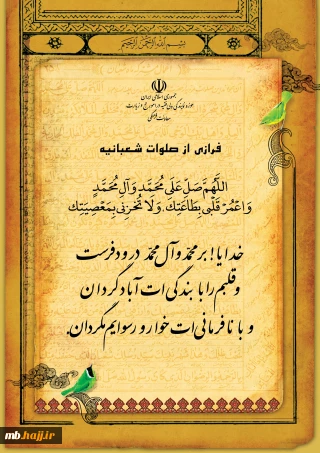 بسم الله الرحمن الرحیم
جمهوری اسلامی ایران
حوزه نمایندگی ولی فقیه در امور حج و زیارت
معاونت فرهنگی
فرازی از صلوات شعبانیه
اَللّهُمَّ صَلِّ عَلی مُحَمَّدٍ وَآلِ مُحَمَّدٍ
وَاعْمُرْ قَلْبی بِطاعَتِكَ، وَلا تُخْزِنی بِمَعْصِیَتِكَ
خدایا! بر محمّد و آل محمّد درود فرست
و قلبم را با بندگی ات آباد گردان
و با نافرمانی ات خوار و رسوایم مگردان.
mb.hajj.ir